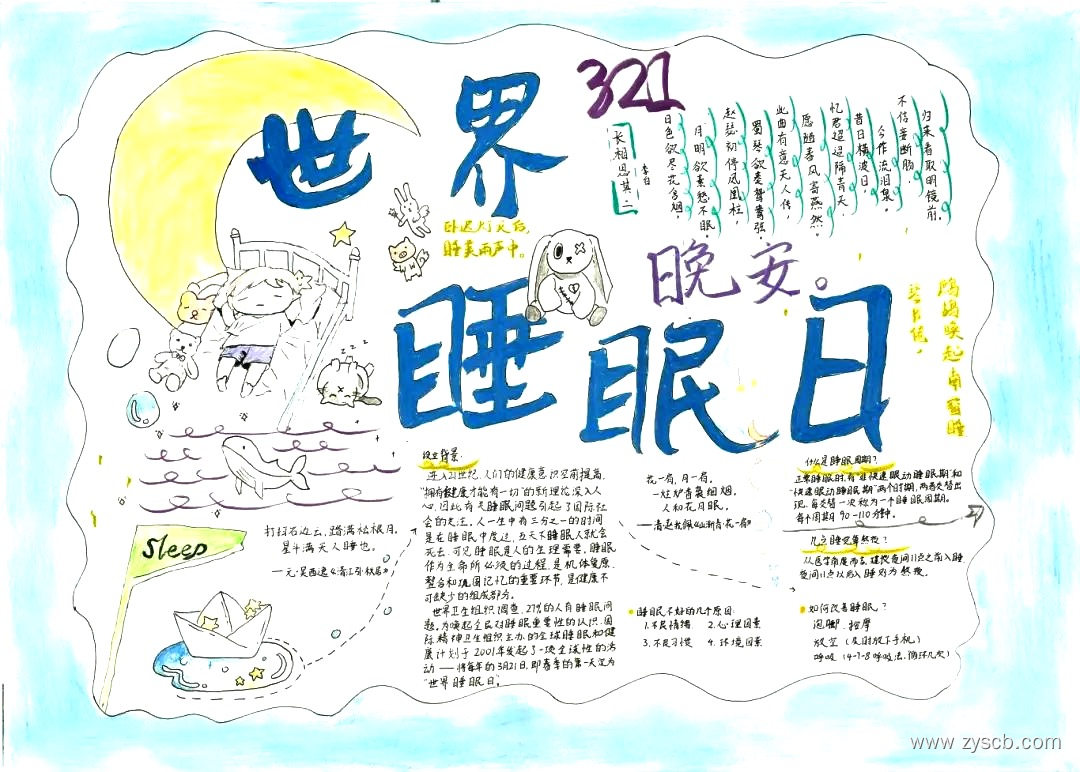 世界
321
睡眠日
晚安。
长相思其二
李白
日色欲尽花含烟,
月明欲素愁不眠。
赵瑟初停凤凰柱,
蜀琴欲奏鸳鸯弦。
此曲有意无人传,
愿随春风寄燕然。
忆君迢迢隔青天,
昔日横波目,
今作流泪泉。
不信妾断肠,
归来看取明镜前。
卧迟灯灭后,
睡美雨声中。
鸣鸠唤起南窗睡
zzz
Sleep
打挡石边云,踏满松根月。
星斗满天人睡也。
——元·吴西逸《清江引·秋居》
设立背景:
进入21世纪,人们的健康意识空前提高,
"拥有健康才能有一切"的新理念深入人
心。因此有关睡眠问题引起了国际社
会的关注。人一生中有三分之一的时间
是在睡眠中度过,五天不睡眠人就会
死去,可见睡眠是人的生理需要。睡眠
作为生命所必须的过程,是机体复原、
整合和巩固记忆的重要环节,是健康不
可缺少的组成部分。
世界卫生组织调查,27%的人有睡眠问
题。为唤起全民对睡眠重要性的认识,国
际精神卫生组织主办的全球睡眠和健
康计划于2001年发起了一项全球性的活
动——将每年的3月21日,即春季的第一天定为
"世界睡眠日"
花一扇,月一扇。
一炷炉香袅细烟。
人和花月眠。
什么是睡眠周期?
正常睡眠时,有"非快速眼动睡眠期"和
"快速眼动睡眠期"两个时期,两者交替出
现。每交替一次称为一个睡眠周期。
每个周期90-110分钟。
几点睡觉算熬夜?
从医学角度而言,建议夜间11点之前入睡
夜间11点以后入睡则为熬夜。
睡眠不好的几个原因:
1.不良情绪 2.心理因素
3.不良习惯 4.环境因素
如何改善睡眠?
泡脚、按摩
放空(及时放下手机)
呼吸(4-7-8呼吸法,循环几次)
www.zyscb.com